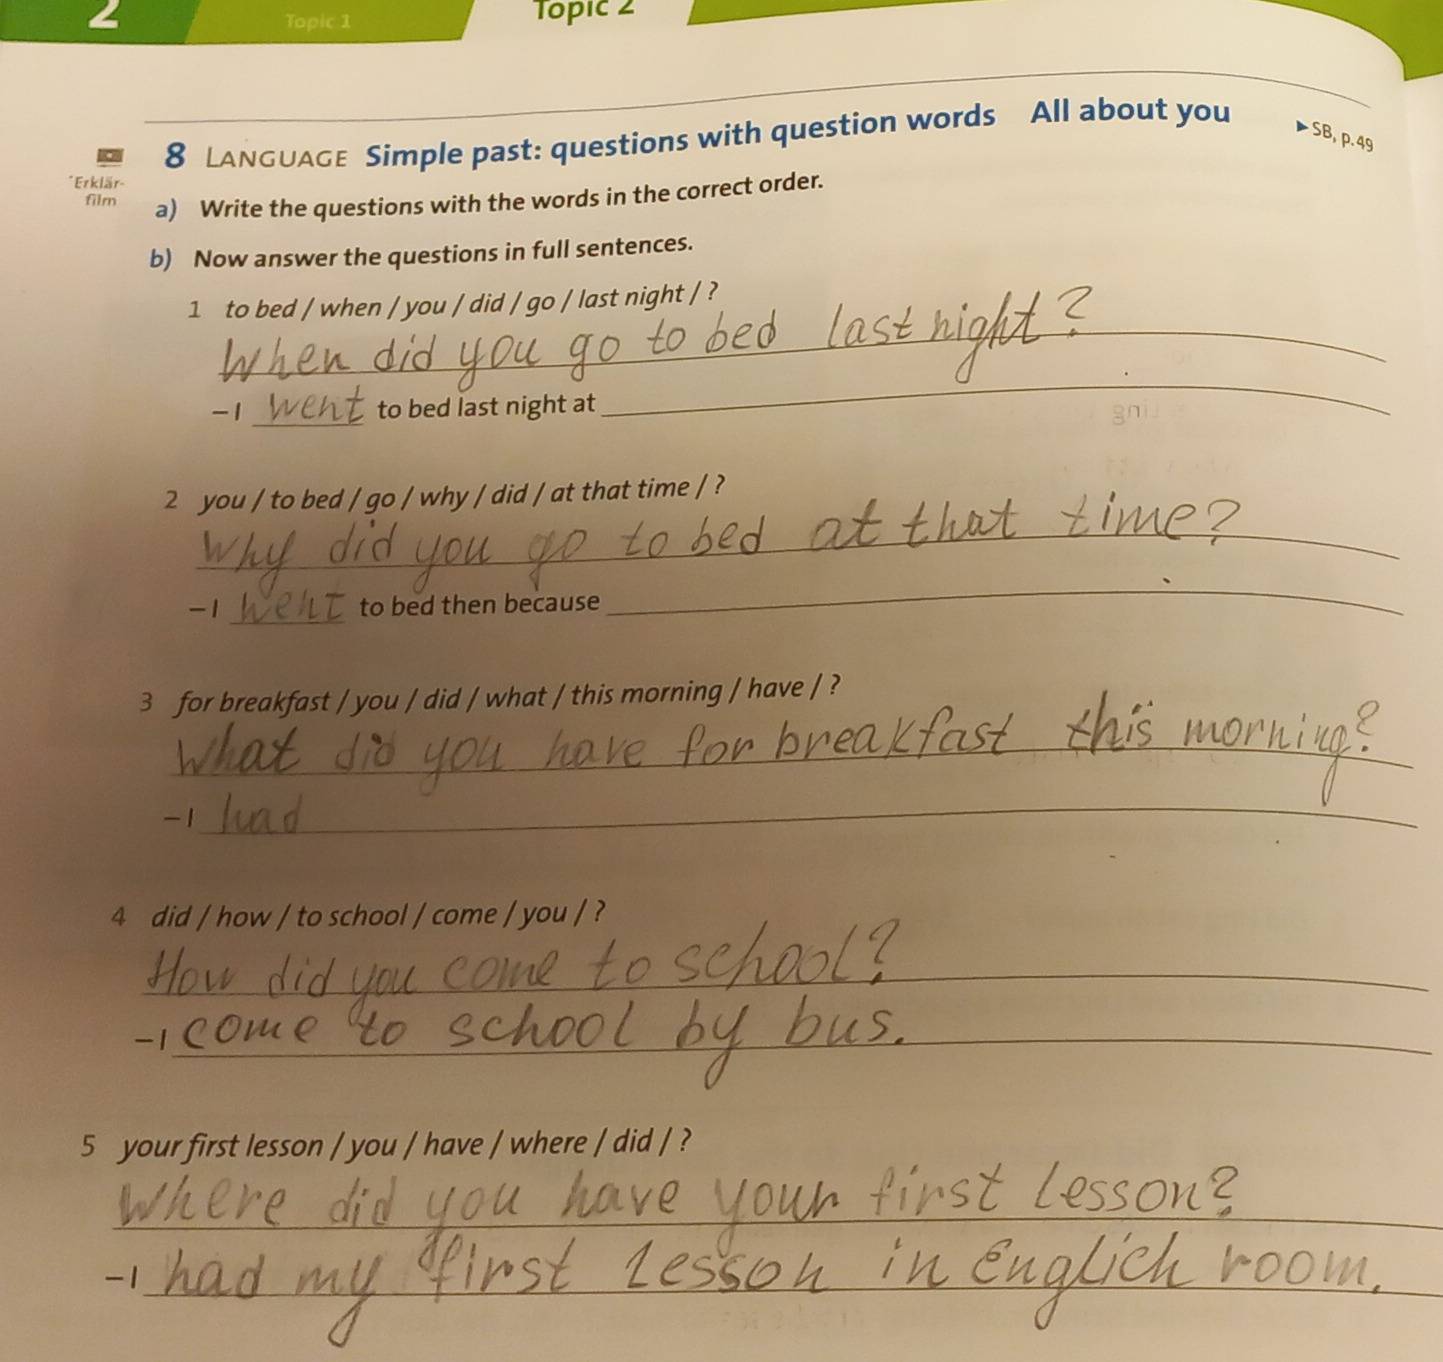 2 Topic 1 Topic 2
8 LANGUAGE Simple past: questions with question words All about you ▶SB, p.49
Erklär-
film
a) Write the questions with the words in the correct order.
b) Now answer the questions in full sentences.
1 to bed / when / you / did / go / last night / ?
When did you go to bed last night?
– I went to bed last night at
2 you / to bed / go / why / did / at that time / ?
Why did you go to bed at that time?
– I went to bed then because
3 for breakfast / you / did / what / this morning / have / ?
What did you have for breakfast this morning?
– I had
4 did / how / to school / come / you / ?
How did you come to school?
– I come to school by bus.
5 your first lesson / you / have / where / did / ?
Where did you have your first lesson?
– I had my first lesson in Englich room.